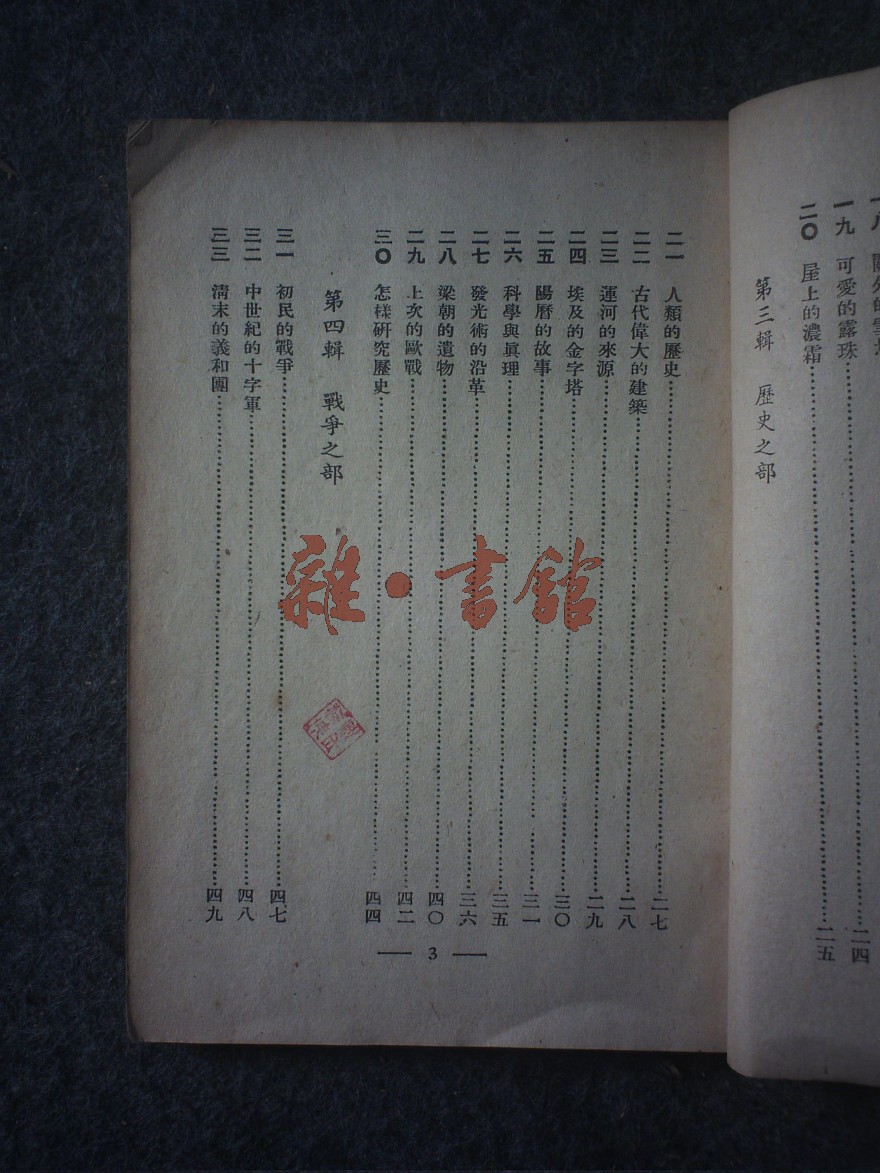 一九 可愛的露珠……二四
二〇 屋上的濃霜……二五
第三輯 歷史之部
二一 人類的歷史……二七
二二 古代偉大的建築……二八
二三 運河的來源……二九
二四 埃及的金字塔……三〇
二五 陽曆的故事……三一
二六 科學與眞理……三五
二七 發光術的沿革……三六
二八 梁朝的遺物……四〇
二九 上次的歐戰……四二
三〇 怎樣研究歷史……四四
第四輯 戰爭之部
三一 初民的戰爭……四七
三二 中世紀的十字軍……四八
三三 淸末的義和團……四九
— 3 —
雜·書館